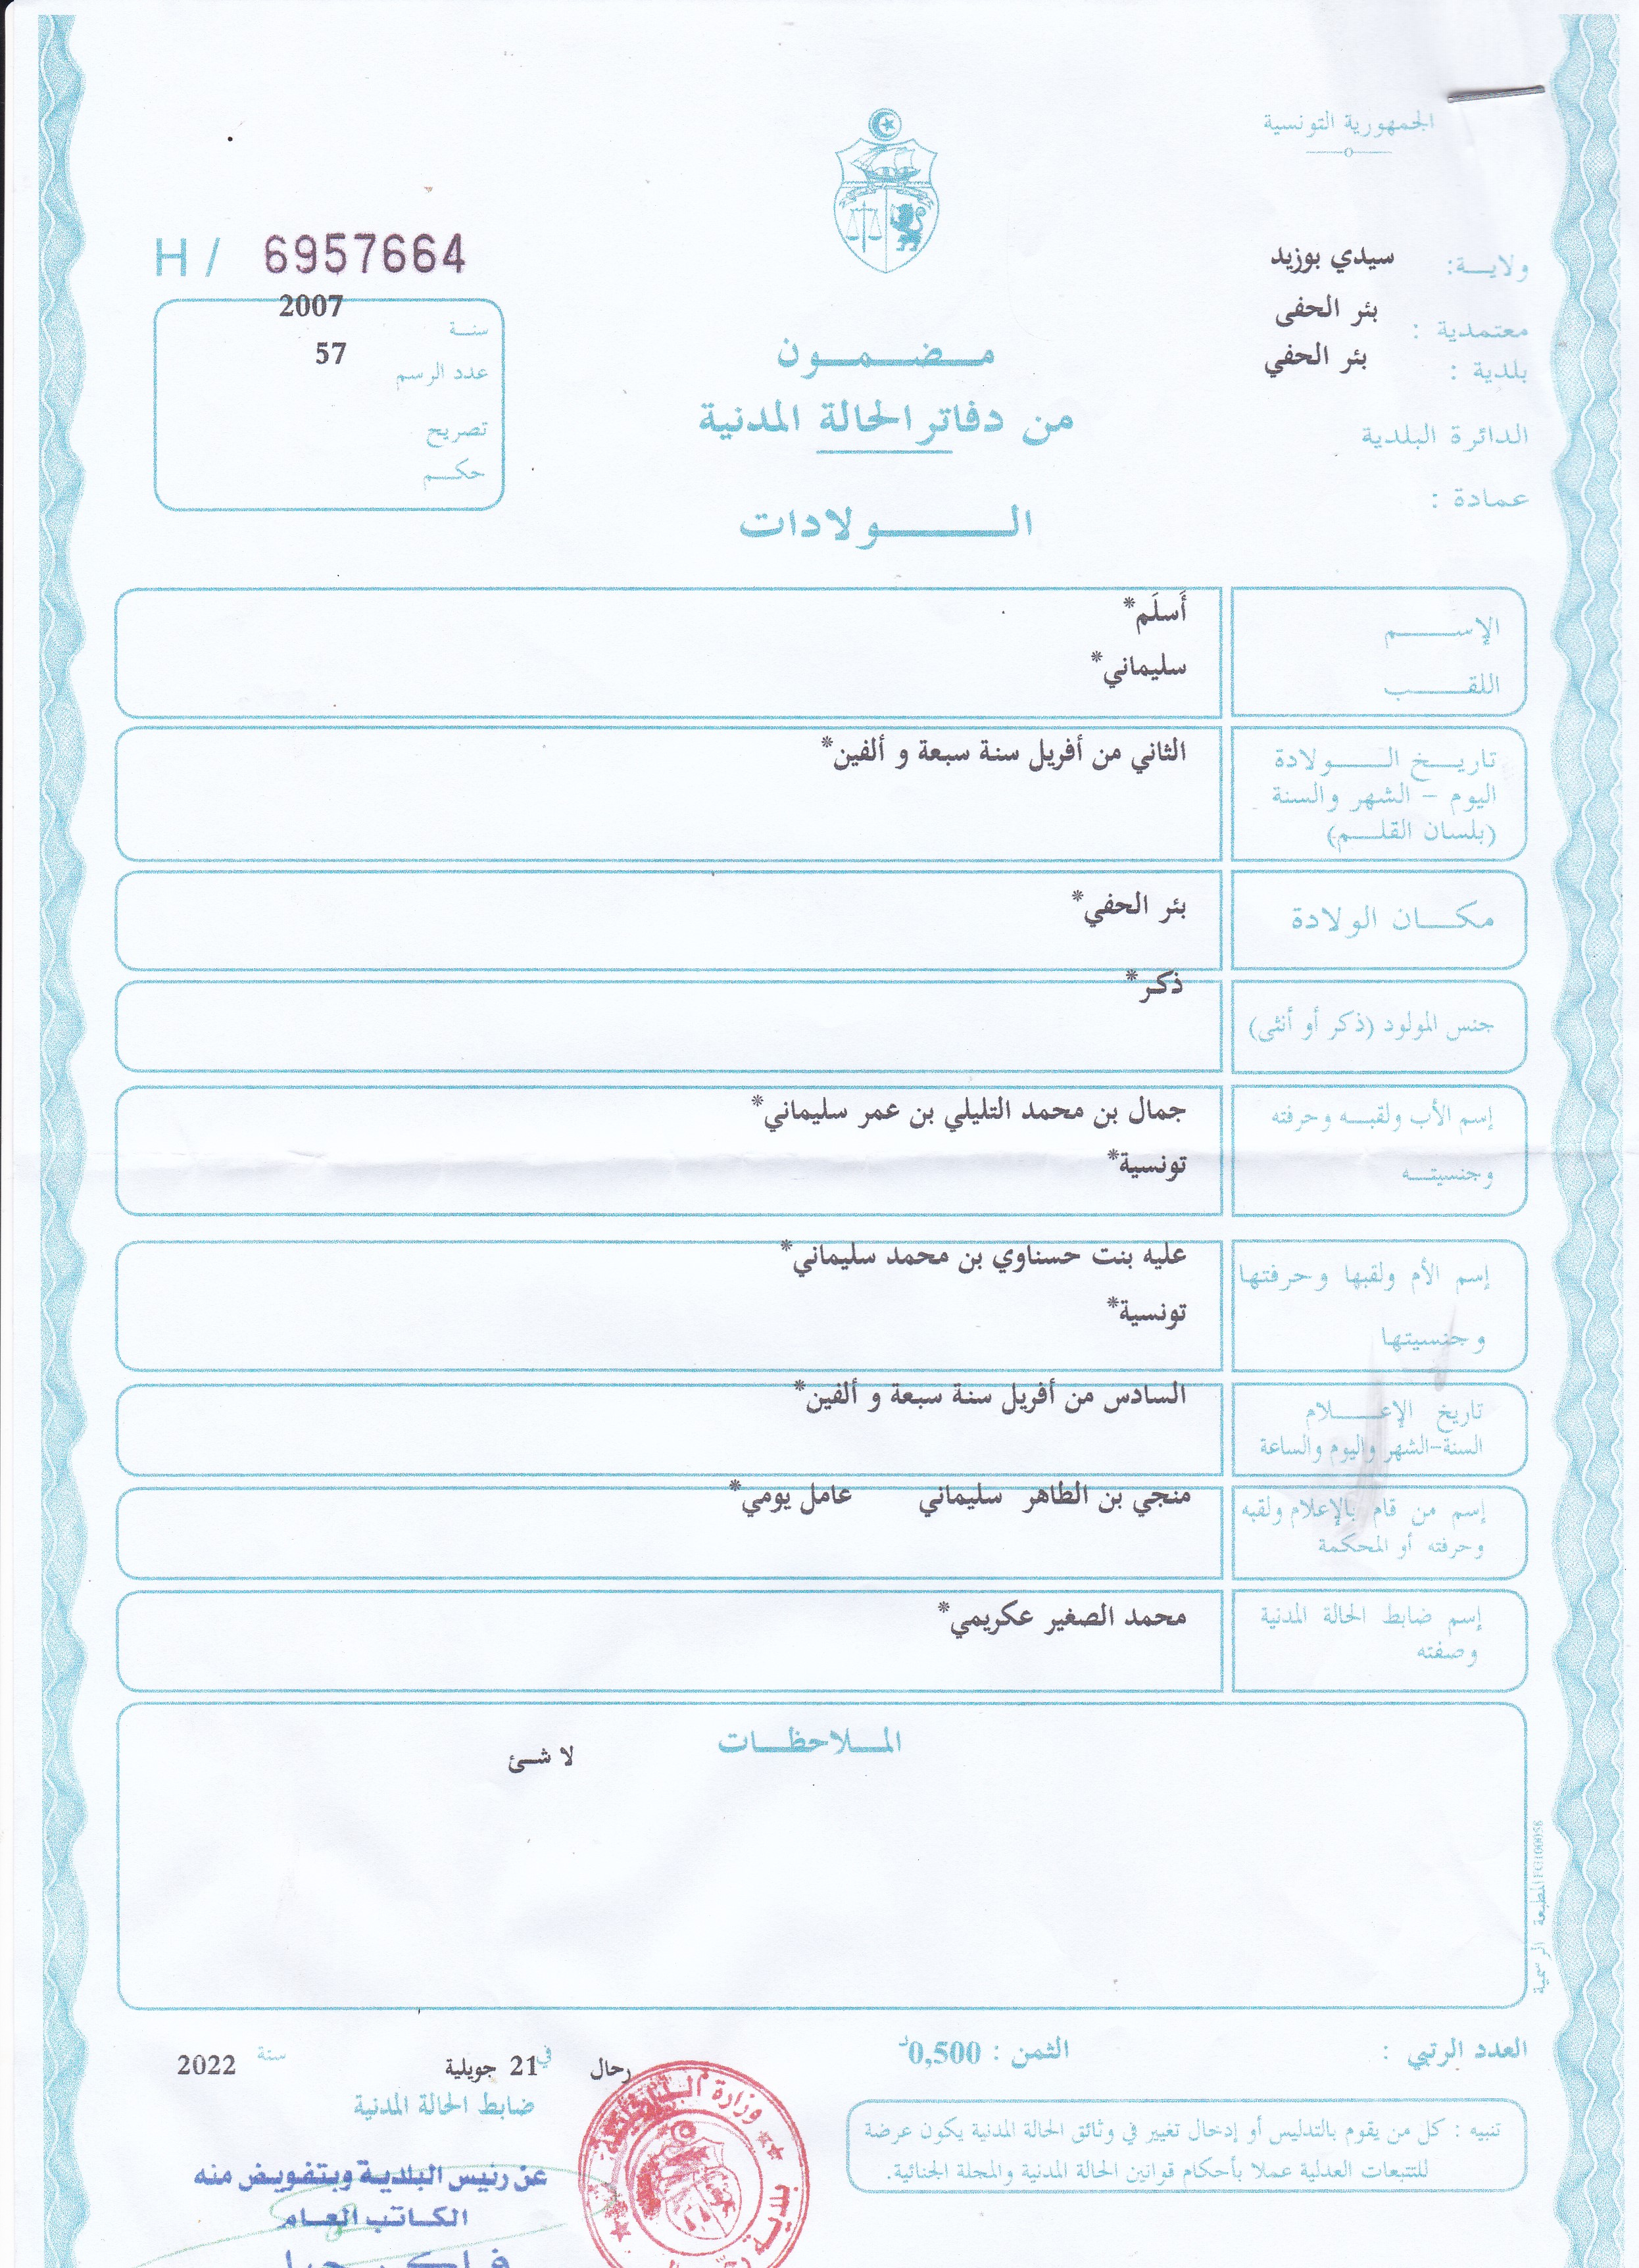 الجمهورية التونسية
ولاية: سيدي بوزيد
معتمدية : بئر الحفى
بلدية : بئر الحفي
الدائرة البلدية
عمادة :
H / 6957664
سنة 2007
عدد الرسم 57
تصريح
حكم
مضمون
من دفاتر الحالة المدنية
الولادات
الإسم أَسلَم*
اللقب سليماني*
تاريخ الولادة الثاني من أفريل سنة سبعة و ألفين*
اليوم - الشهر والسنة
(بلسان القلم)
مكان الولادة بئر الحفي*
جنس المولود (ذكر أو أنثى) ذكر*
إسم الأب ولقبه وحرفته جمال بن محمد التليلي بن عمر سليماني*
وجنسيته تونسية*
إسم الأم ولقبها وحرفتها عليه بنت حسناوي بن محمد سليماني*
وجنسيتها تونسية*
تاريخ الإعلام السادس من أفريل سنة سبعة و ألفين*
السنة-الشهر واليوم والساعة
إسم من قام بالإعلام ولقبه منجي بن الطاهر سليماني عامل يومي*
وحرفته أو المحكمة
إسم ضابط الحالة المدنية محمد الصغير عكريمي*
وصفته
الملاحظات
لا شئ
المطبعة الرسمية
العدد الرتبي :
الثمن : 0,500د
رحال في 21 جويلية سنة 2022
ضابط الحالة المدنية
تنبيه : كل من يقوم بالتدليس أو إدخال تغيير في وثائق الحالة المدنية يكون عرضة
للتتبعات العدلية عملا بأحكام قوانين الحالة المدنية والمجلة الجنائية.
عن رئيس البلدية وبتفويض منه
الكاتب العام
وزارة